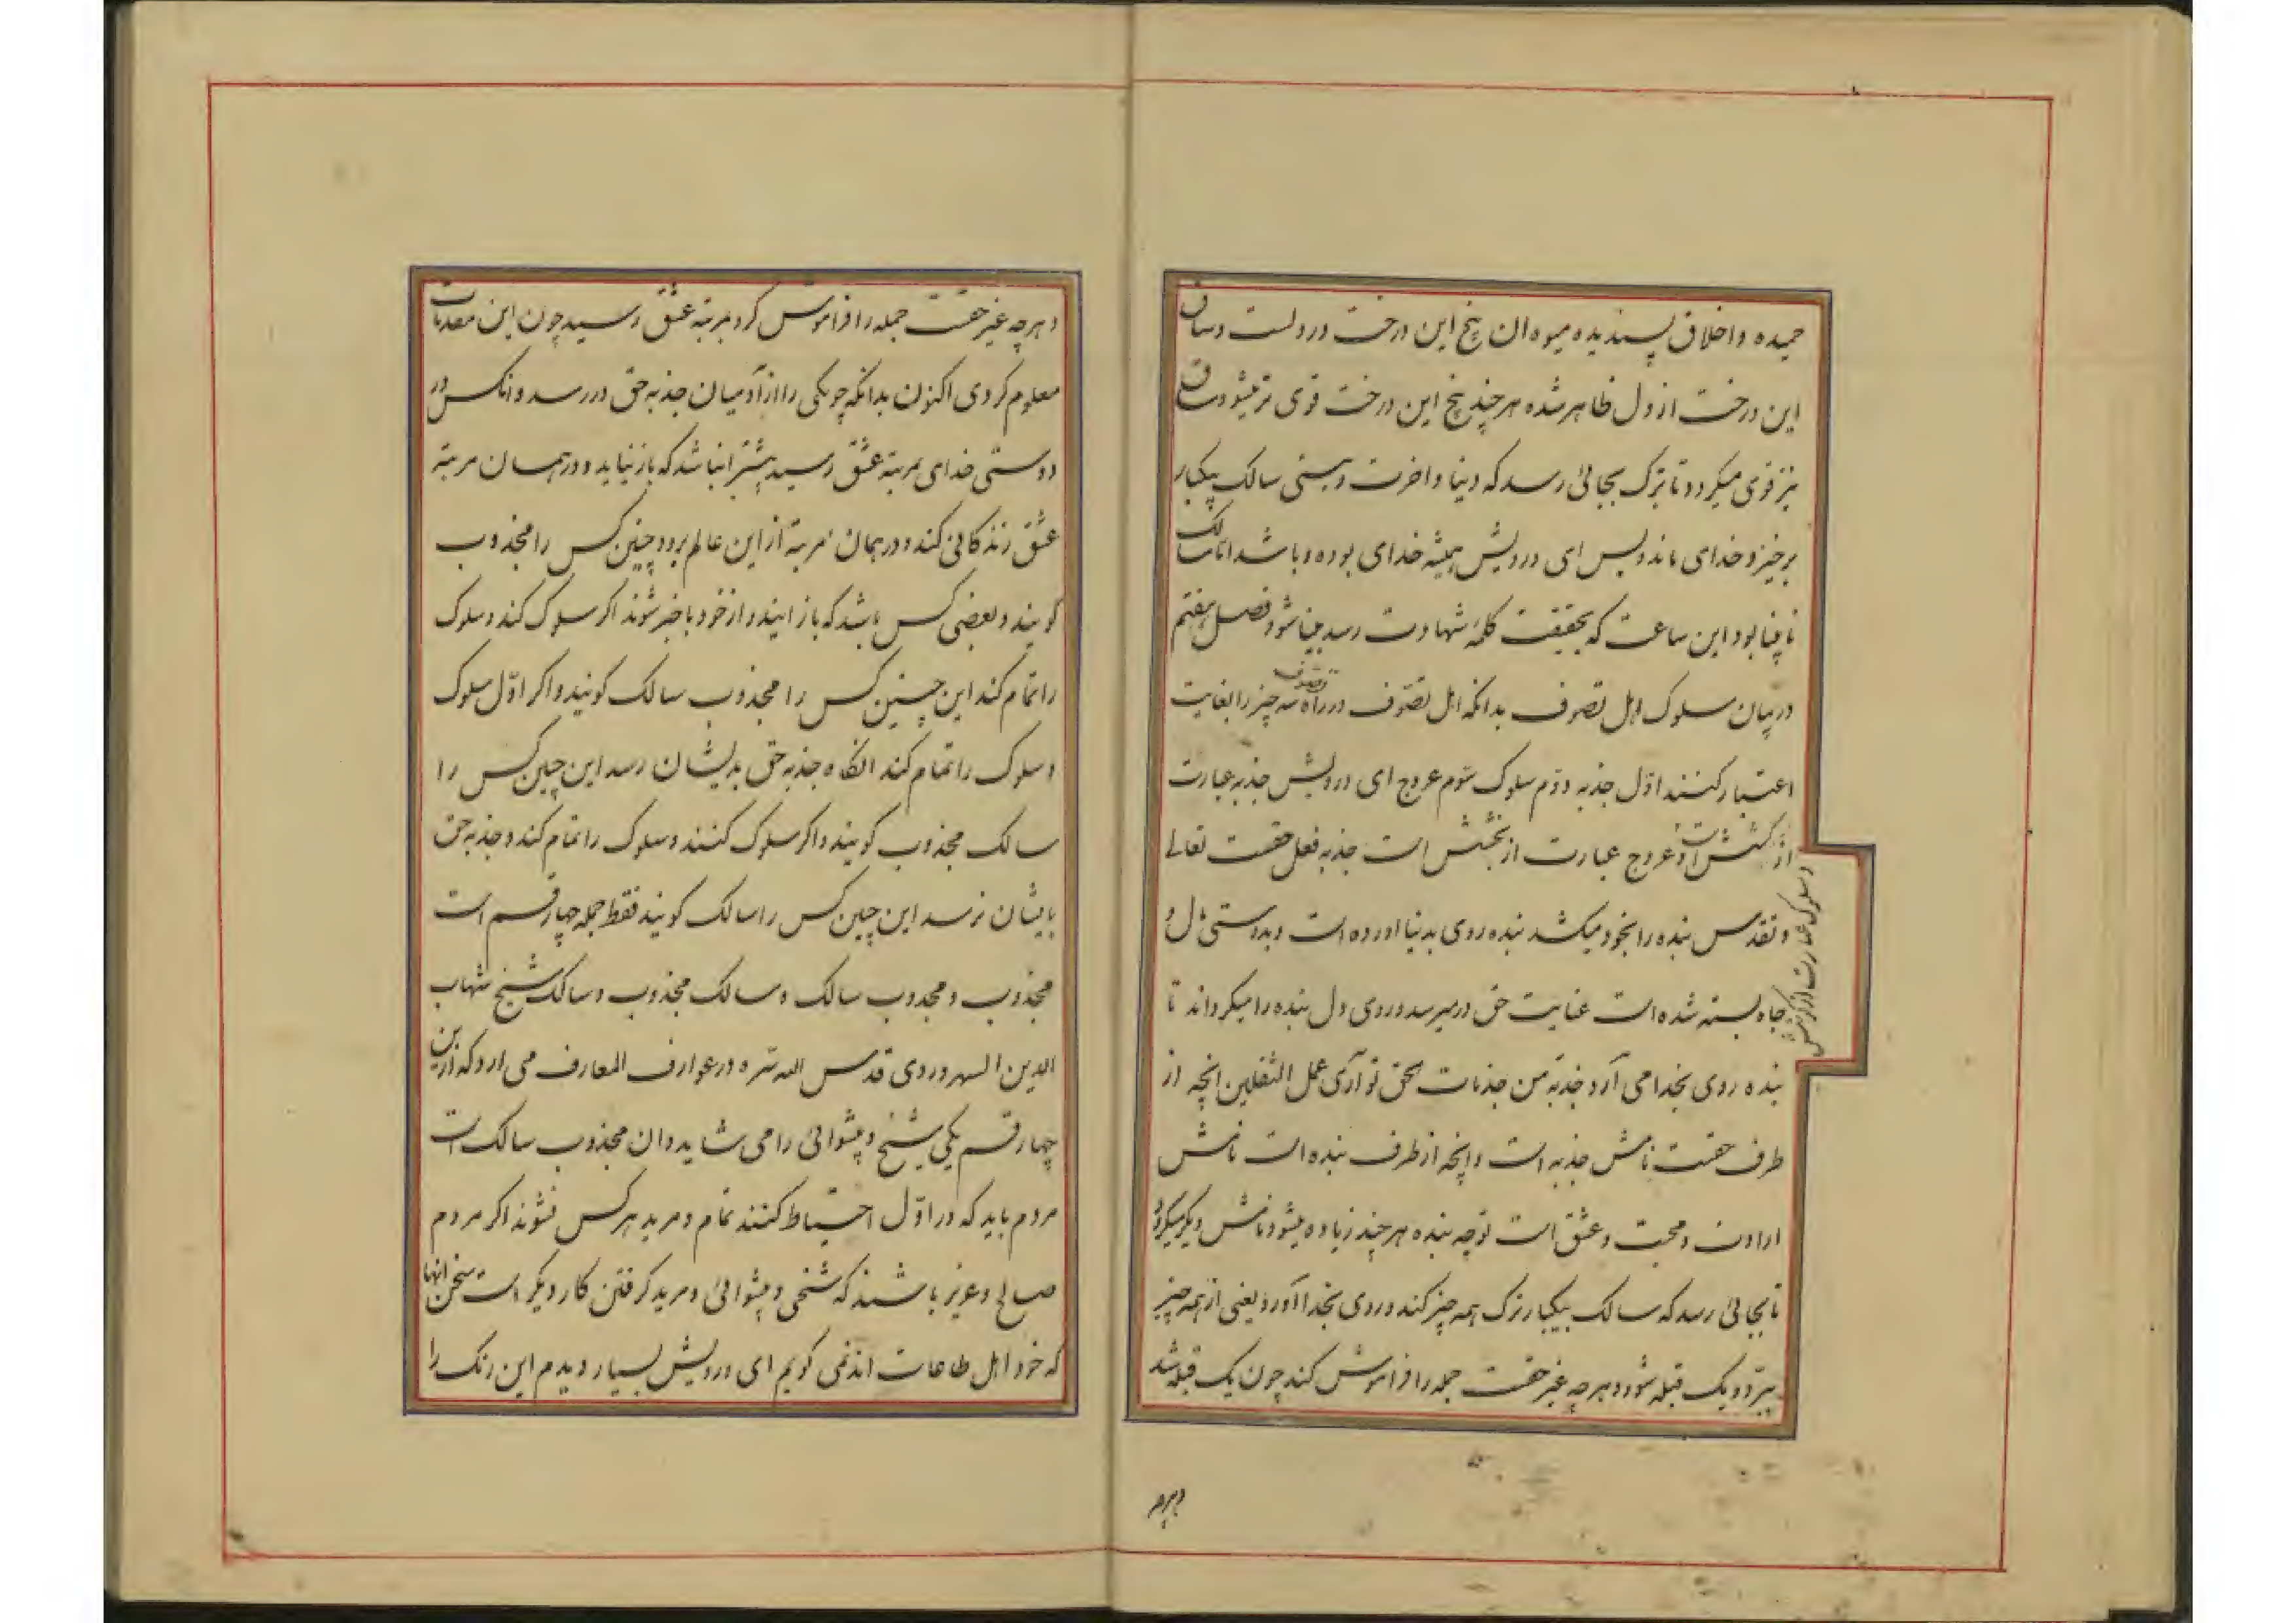 حمیده و اخلاق پسندیده میوه ان بیخ این درخت در دلست و ساق
این درخت از دل ظاهر شده هر چند بیخ این درخت قوی تر میشود ساق
نیز قوی میکردد تا بترک بجائی رسد که دنیا و اخرت و هستی سالک بیکبار
برخیزد و خدای ماند و بس ای درویش همیشه خدای بوده و باشد اما سالک
نابینا بود این ساعت که بحقیقت کلمهٔ شهادت رسد بینا شود فصل هفتم
در بیان سلوک اهل تصوف بدانکه اهل تصوف در راه تصوف سه چیز را بغایت
اعتبار کنند اوّل جذبه دوّم سلوک سّوم عروج ای درویش جذبه عبارت
از کشش است و عروج عبارت از بخشش است جذبه فعل حقست تعالی
و سلوک عبارت از کوشش
و تقدس بنده را بخود میکشد بنده روی بدنیا اورده است و بدوستی مال و
جاه بسته شده است عنایت حق در میرسد و روی دل بنده را میکرداند تا
بنده روی بخدا می آرد جذبة من جذبات حق توآزی عمل الثقلین انچه از
طرف حقست نامش جذبه است و انچه از طرف بنده است نامش
ارادت و محبت و عشق است توجه بنده هر چند زیاده میشود نامش دیکر میکردد
تا بجائی رسد که سالک بیکبار ترک همه چیز کند و روی بخدا آورد یعنی از همه چیز
ببرد و یک قبله شود و هر چه غیر حقست جمله را فراموش کند چون یک قبله شد
و هر چه
و هر چه غیر حقست جمله را فراموش کرد بمرتبه عشق رسید چون این مقدمات
معلوم کردی اکنون بدانکه چو یکی را از آدمیان جذبه حق در رسد و انکس در
دوستی خدای بمرتبه عشق رسید بیشتر انباشد که باز نیاید و در همان مرتبه
عشق زندکانی کند و در همان مرتبه از این عالم برود چنین کس را مجذوب
کویند و بعضی کس باشد که باز ایند و از خود با خبر شوند اکر سلوک کند و سلوک
را تمام کند این چنین کس را مجذوب سالک کویند و اکر اوّل سلوک
و سلوک را تمام کند انکاه جذبه حق بدیشان رسد این چنین کس را
سالک مجذوب کویند و اکر سلوک کنند و سلوک را تمام کند و جذبه حق
بایشان نرسد این چنین کس را سالک کویند فقط جمله چهار قسم است
مجذوب و مجذوب سالک و سالک مجذوب و سالک شیخ شهاب
الدین السهروردی قدس الله سره در عوارف المعارف می ارد که از این
چهار قسم یکی شیخ و پیشوائی را می شاید و ان مجذوب سالک است
مردم باید که در اوّل احتیاط کنند تمام و مرید هر کس نشوند اکر مردم
صالح و عزیز باشند که شیخی و پیشوائی و مرید کرفتن کار دیکر است سخن انها
که خود اهل طاعات اند نمی کویم ای درویش بسیار دیدم این رنک را